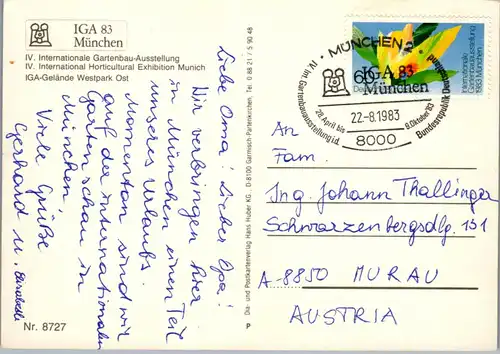 IGA 83
München
IV. Internationale Gartenbau-Ausstellung
IV. International Horticultural Exhibition Munich
IGA-Gelände Westpark Ost
Liebe Oma! Lieber Opa!
Wir verbringen hier
in München einen Teil
unseres Urlaubs.
Momentan sind wir
auf der internationalen
Gartenschau in
München.
Viele Grüße
Gerhard u.
Nr. 8727
Dia- und Postkartenverlag Hans Huber KG, D-8100 Garmisch-Partenkirchen, Tel. 0 88 21 / 5 90 48
P
MÜNCHEN 2
IGA 83
München
IV. Int. Gartenbauausstellung i.d. Bundesrepublik Deutschland
28. April bis 9. Oktober 83
22.-8.1983
8000
60
Internationale
Gartenbauausstellung
1983 München
An
Fam.
Ing. Johann Thallinger
Schwarzenbergsdlg. 151
A-8850 MURAU
AUSTRIA